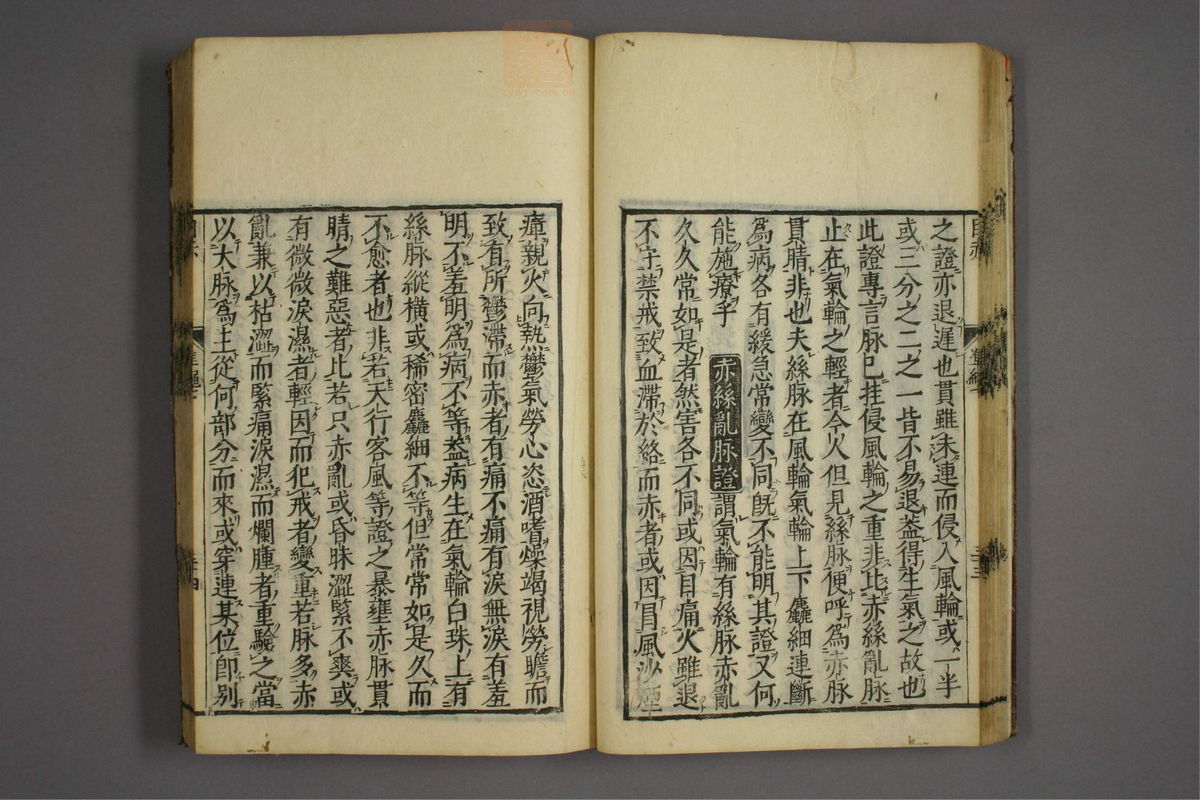 之證亦退遲也貫雖未連而侵入風輪或一半
或三分之二之一皆不易退葢得生氣之故也
此證專言脉已挂侵風輪之重非比赤絲亂脉
止在氣輪之輕者今火但見絲脉便呼爲赤脉
貫睛非也夫絲脉在風輪氣輪上下麤細連斷
爲病各有緩急常變不同旣不能明其證又何
能施療乎 赤絲亂脉證 謂氣輪有絲脉赤亂
久久常如是者然害各不同或因目痛火雖退
不守禁戒致血滯於絡而赤者或因冒風沙煙
瘴親火向熱鬱氣勞心恣酒嗜燥竭視勞瞻而
致有所鬱滯而赤者有痛不痛有淚無淚有羞
明不羞明爲病不等葢病生在氣輪白珠上有
絲脉縱橫或稀密麤細不等但常常如是久而
不愈者也非若天行客風等證之暴壅赤脉貫
睛之難惡者比若只赤亂或昏昧澀緊不爽或
有微微淚濕者輕因而犯戒者變重若脉多赤
亂兼以枯澀而緊痛淚濕而爛腫者重驗之當
以大脉爲主從何部分而來或穿連某位即別